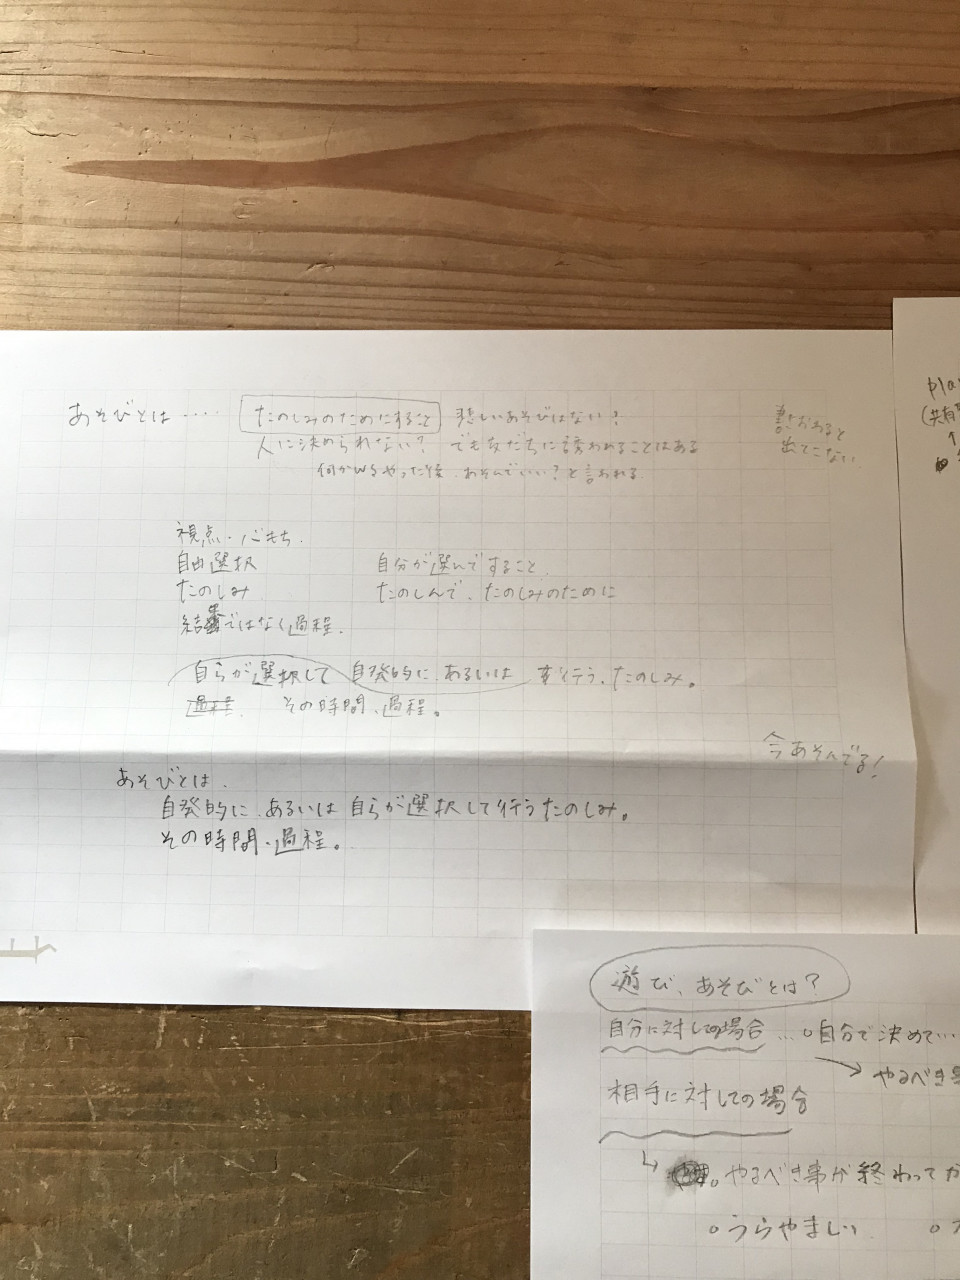 あそびとは‥‥ たのしみのためにすること 悲しいあそびはない!
人に決められない? でも友だちに誘われることはある
何かやった後、あそんでいい?と言われる
おわると
出てこない
視点・心もち.
自由選択 自分が選んですること.
たのしみ. たのしんで、たのしみのために
結果ではなく過程.
自らが選択して 自発的に、あるいは 行う、たのしみ。
過程 その時間、過程。
今あそんでる!
あそびとは、
自発的に、あるいは自らが選択して行うたのしみ。
その時間、過程。
pla
(共有
↑
遊び、あそびとは?
自分に対しての場合 …○自分で決めて…
→やるべき
相手に対しての場合
↳ 。やるべき事が終わってか
○うらやましい ○